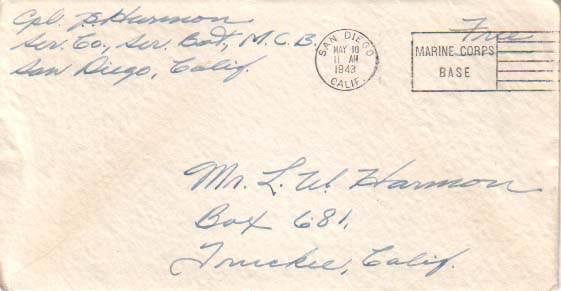 Cpl. B Harmon
Ser. Co., Ser. Bat., M.C.B.
San Diego, Calif.
SAN DIEGO
MAY 10
11 AM
1943
CALIF.
Free
MARINE CORPS
BASE
Mr. L. W. Harmon
Box 681,
Truckee, Calif.